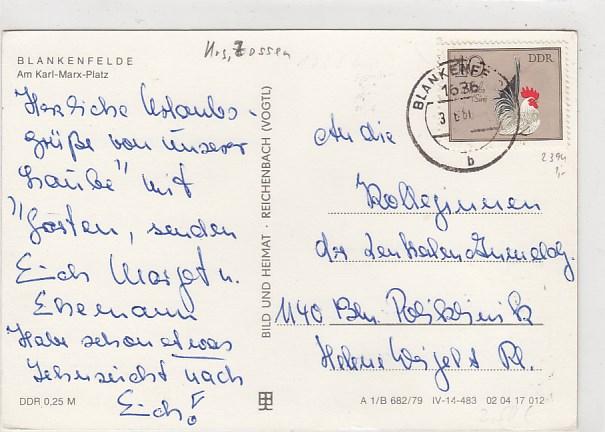 BLANKENFELDE
Am Karl-Marx-Platz
Krs, Zossen
Herzliche Urlaubs-
grüße von unserer
"Laube" mit
"Garten, senden
Euch Margot u.
Ehemann
Habe schon etwas
Sehnsucht nach
Euch!
DDR 0,25 M
BILD UND HEIMAT · REICHENBACH (VOGTL)
DDR
BLANKENFE
1636
b
2394
An die
Kolleginnen
der Zentralen Anmeldg.
1140 Bln. Poliklinik
Helene Weigel Pl.
A 1/B 682/79 IV-14-483 02 04 17 012